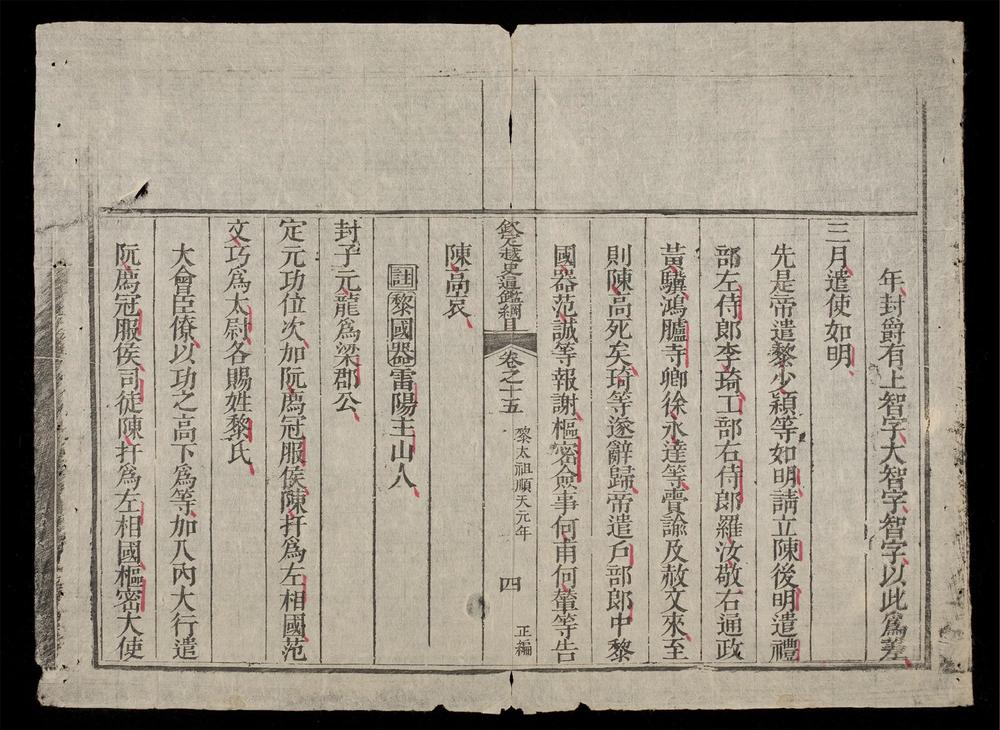 年封爵有上智字大智字智字以此爲差
三月遣使如明
先是帝遣黎少穎等如明請立陳後明遣禮
部左侍郎李琦工部右侍郎羅汝敬右通政
黃驥鴻臚寺卿徐永達等賫諭及赦文來至
則陳高死矣琦等遂辭歸帝遣戶部郎中黎
國器范誠等報謝樞密僉事何甫何輦等告
欽定越史通鑑綱目 卷之十五 黎太祖順天元年 四 正編
陳高哀
註 黎國器雷陽主山人
封子元龍爲梁郡公
定元功位次加阮廌冠服侯陳扞爲左相國范
文巧爲太尉各賜姓黎氏
大會臣僚以功之高下爲等加入內大行遣
阮廌冠服侯司徒陳扞爲左相國樞密大使